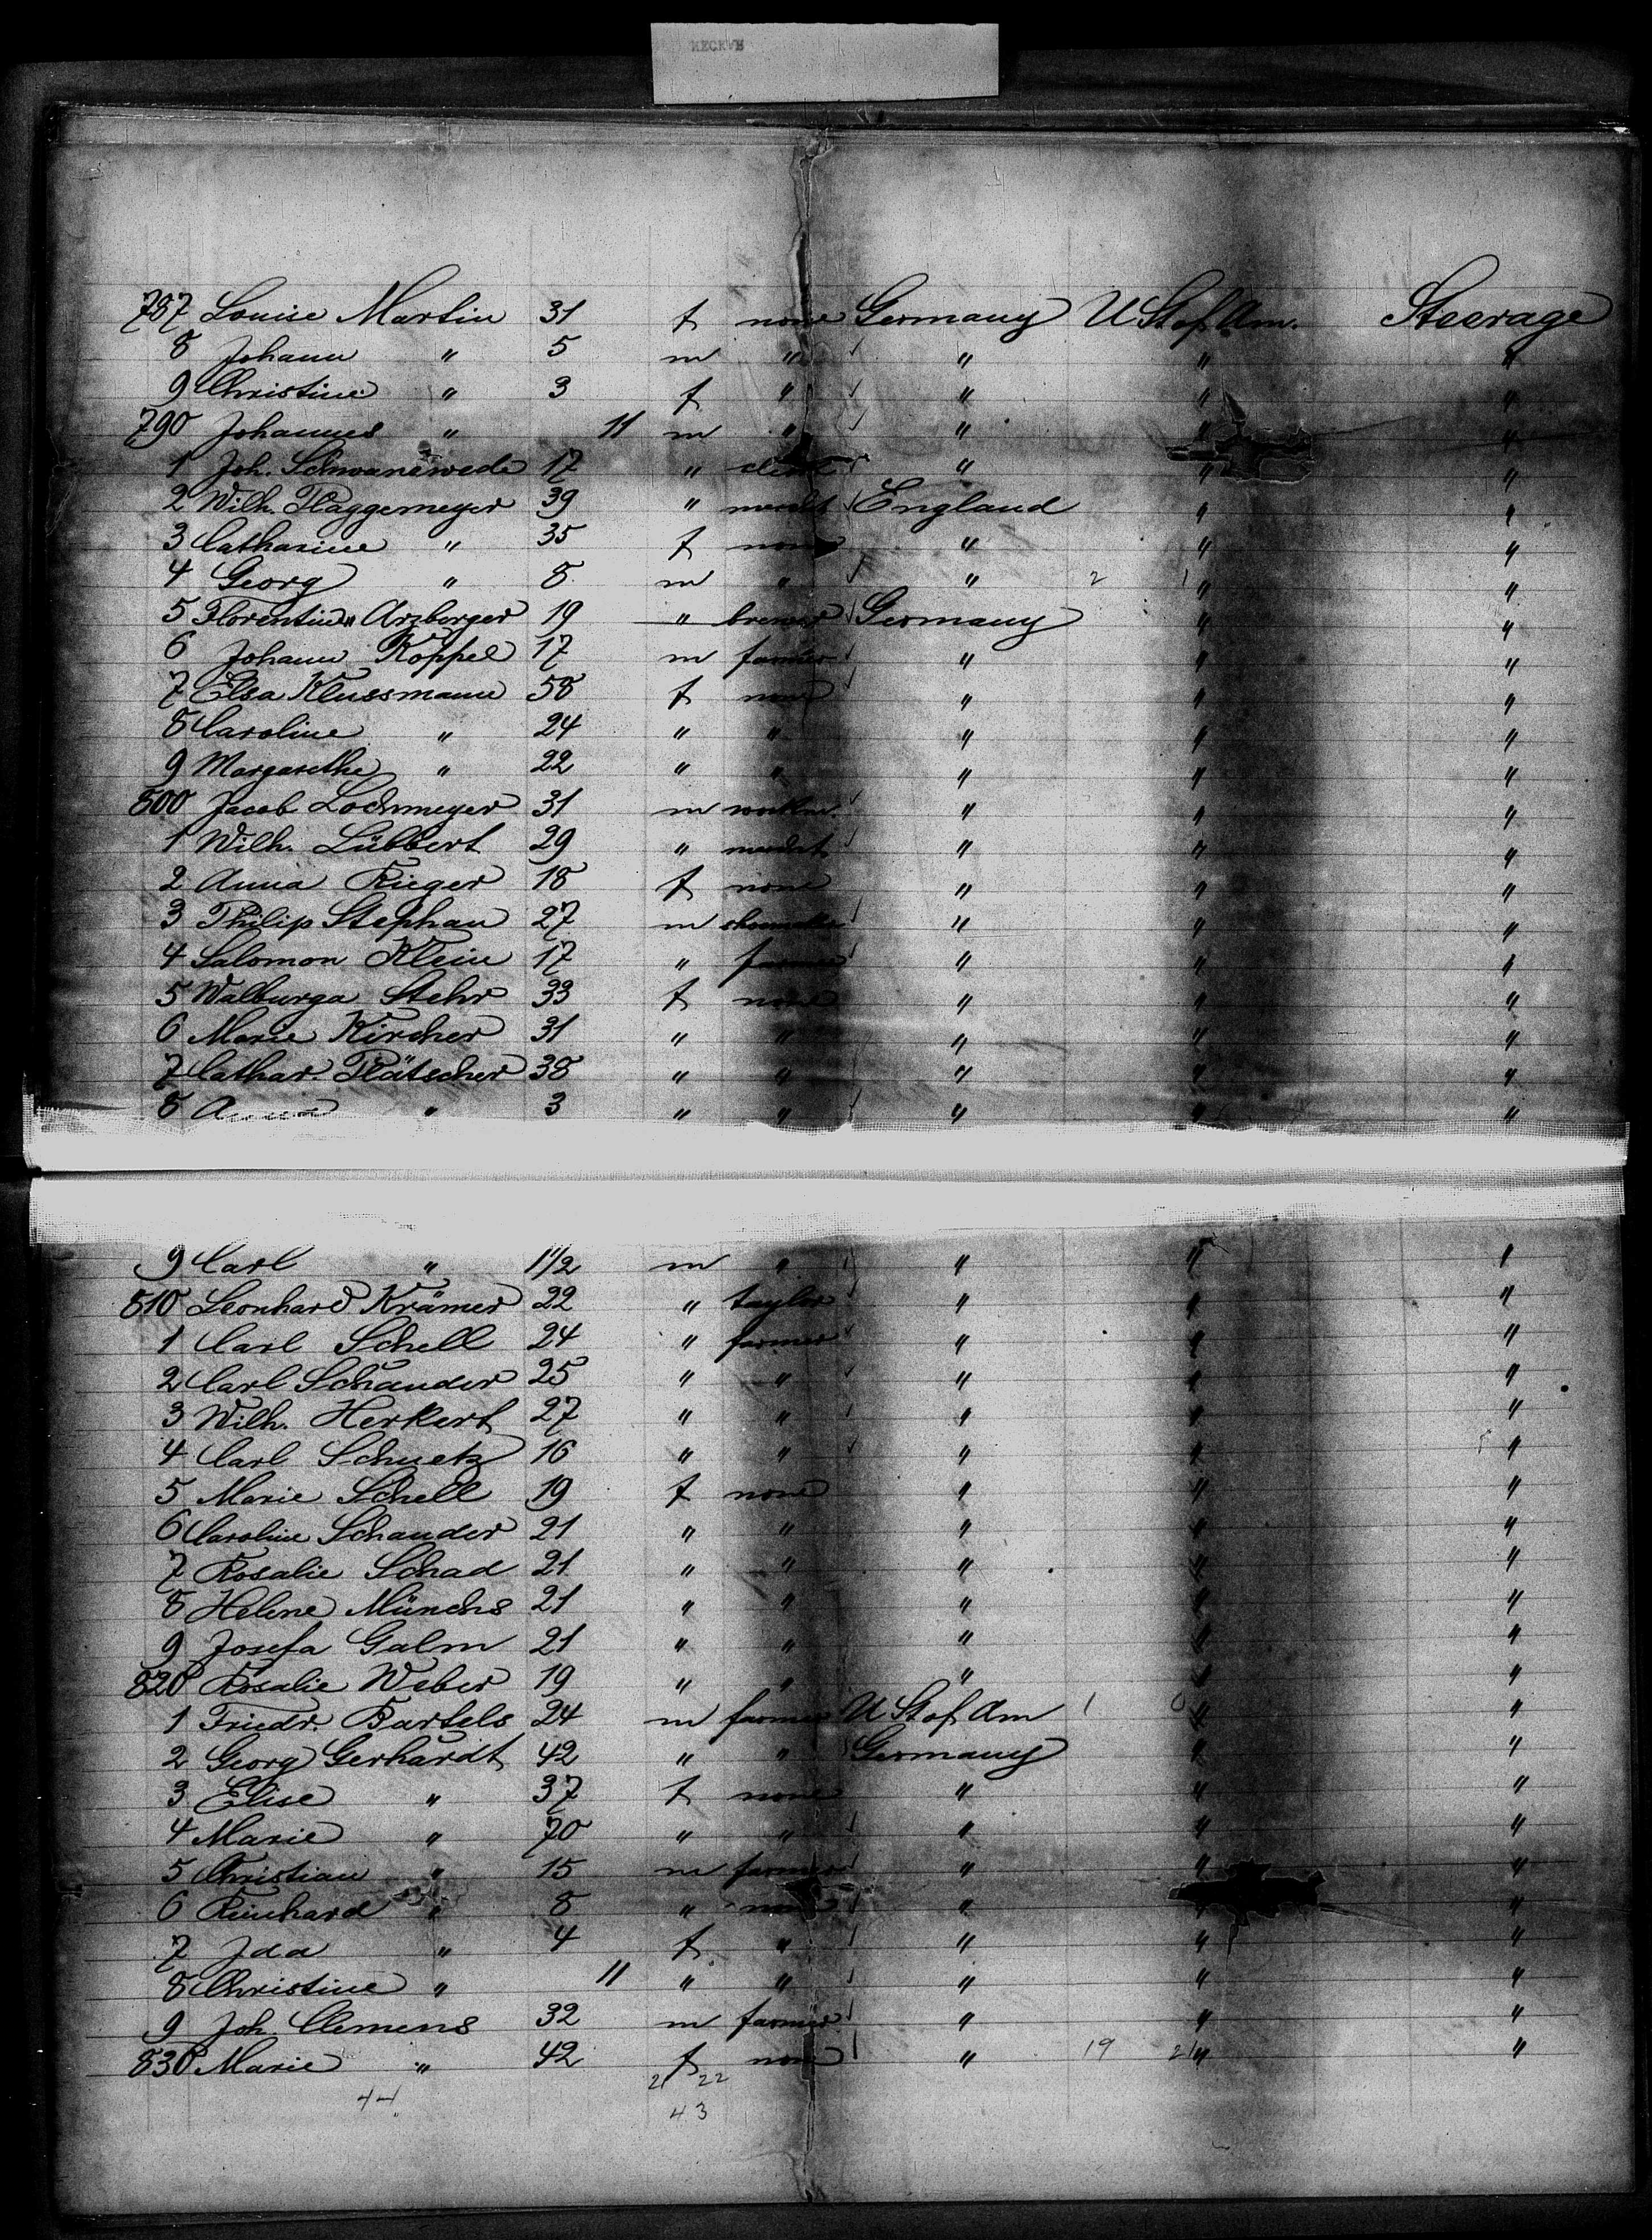 787 Louise Martin 31 f none Germany U St of Am. Steerage
8 Johann " 5 m " " " "
9 Christine " 3 f " " " "
790 Johannes " 11 m " " " "
1 Joh. Schwanewede 17 " clerk " " "
2 Wilh. Plaggemeyer 39 " mercht England " "
3 Catharine " 35 f none " " "
4 Georg " 8 m " " 2 1 " "
5 Florentin Arzberger 19 " brewer Germany " "
6 Johann Koppel 17 m farmer " " "
7 Elsa Klussmann 58 f none " " "
8 Caroline " 24 " " " " "
9 Margarethe " 22 " " " " "
800 Jacob Lochmeyer 31 m workm. " " "
1 Wilh. Lübbert 29 " mercht " " "
2 Anna Rieger 18 f none " " "
3 Philip Stephan 27 m shoemaker " " "
4 Salomon Klein 17 " farmer " " "
5 Walburga Stehr 33 f none " " "
6 Marie Kircher 31 " " " " "
7 Cathar. Plätscher 38 " " " " "
8 Anna " 3 " " " " "
9 Carl " 1 1/2 m " " " "
810 Leonhard Krämer 22 " taylor " " "
1 Carl Schell 24 " farmer " " "
2 Carl Schander 25 " " " " "
3 Wilh. Herkert 27 " " " " "
4 Carl Schuetz 16 " " " " "
5 Marie Schell 19 f none " " "
6 Caroline Schander 21 " " " " "
7 Rosalie Schad 21 " " " " "
8 Helene Münchs 21 " " " " "
9 Josefa Galm 21 " " " " "
820 Rosalie Weber 19 " " " " "
1 Friedr. Bartels 24 m farmer U St of Am 1 0 " "
2 Georg Gerhardt 42 " " Germany " "
3 Elise " 37 f none " " "
4 Marie " 70 " " " " "
5 Christian " 15 m farmer " " "
6 Reinhard " 8 " none " " "
7 Ida " 4 f " " " "
8 Christine " 11 " " " " "
9 Joh. Clemens 32 m farmer " " "
830 Marie " 42 f none " 19 21 " "
21 22
44 43